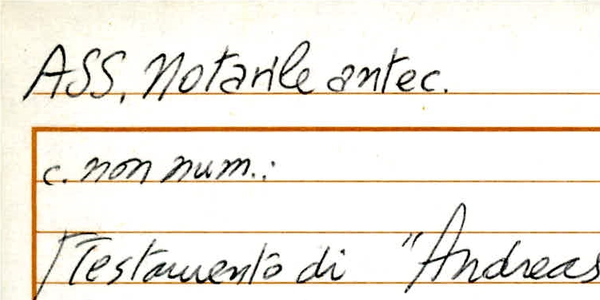 ASS, Notarile antec.
c. non num.:
[Testamento di "Andreas